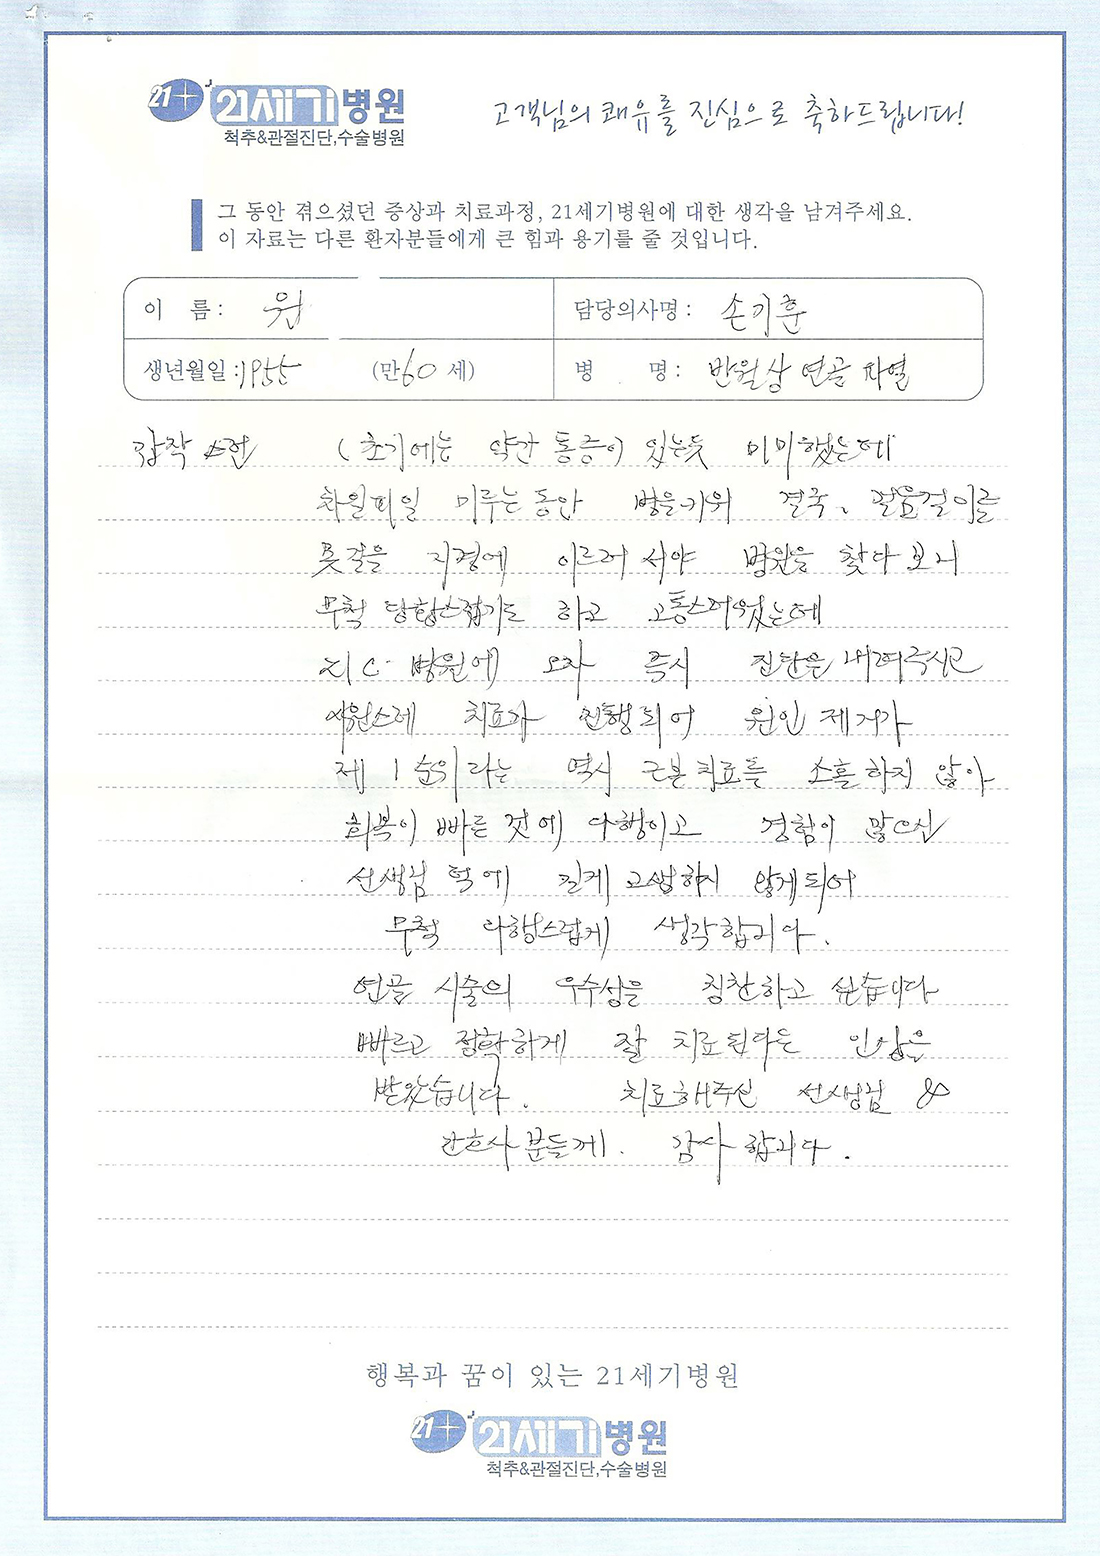 21+ 21세기병원
척추&관절진단,수술병원
고객님의 쾌유를 진심으로 축하드립니다!
그 동안 겪으셨던 증상과 치료과정, 21세기병원에 대한 생각을 남겨주세요.
이 자료는 다른 환자분들에게 큰 힘과 용기를 줄 것입니다.
이 름 : 원
담당의사명 : 손기훈
생년월일 : 1955 (만 60 세)
병 명 : 반월상 연골 파열
(초기에는 약간 통증이 있는듯 미미했는데
차일피일 미루는 동안 병을 키워 결국, 걸음걸이를
못걸을 지경에 이르러서야 병원을 찾다보니
무척 당황스럽기도 하고 고통스러웠는데
21C 병원에 오자 즉시 진단을 내려주시고
치료가 진행되어 원인 제거가
제 1 순위라는 역시 근본치료를 소홀하지 않아
회복이 빠른 것에 다행이고 경험이 많으신
선생님 덕에 길게 고생하지 않게되어
무척 다행스럽게 생각합니다.
연골 시술의 우수성을 칭찬하고 싶습니다
빠르고 정확하게 잘 치료된다는 인상을
받았습니다. 치료해주신 선생님 &
간호사분들께. 감사합니다.
행복과 꿈이 있는 21세기병원
21+ 21세기병원
척추&관절진단,수술병원